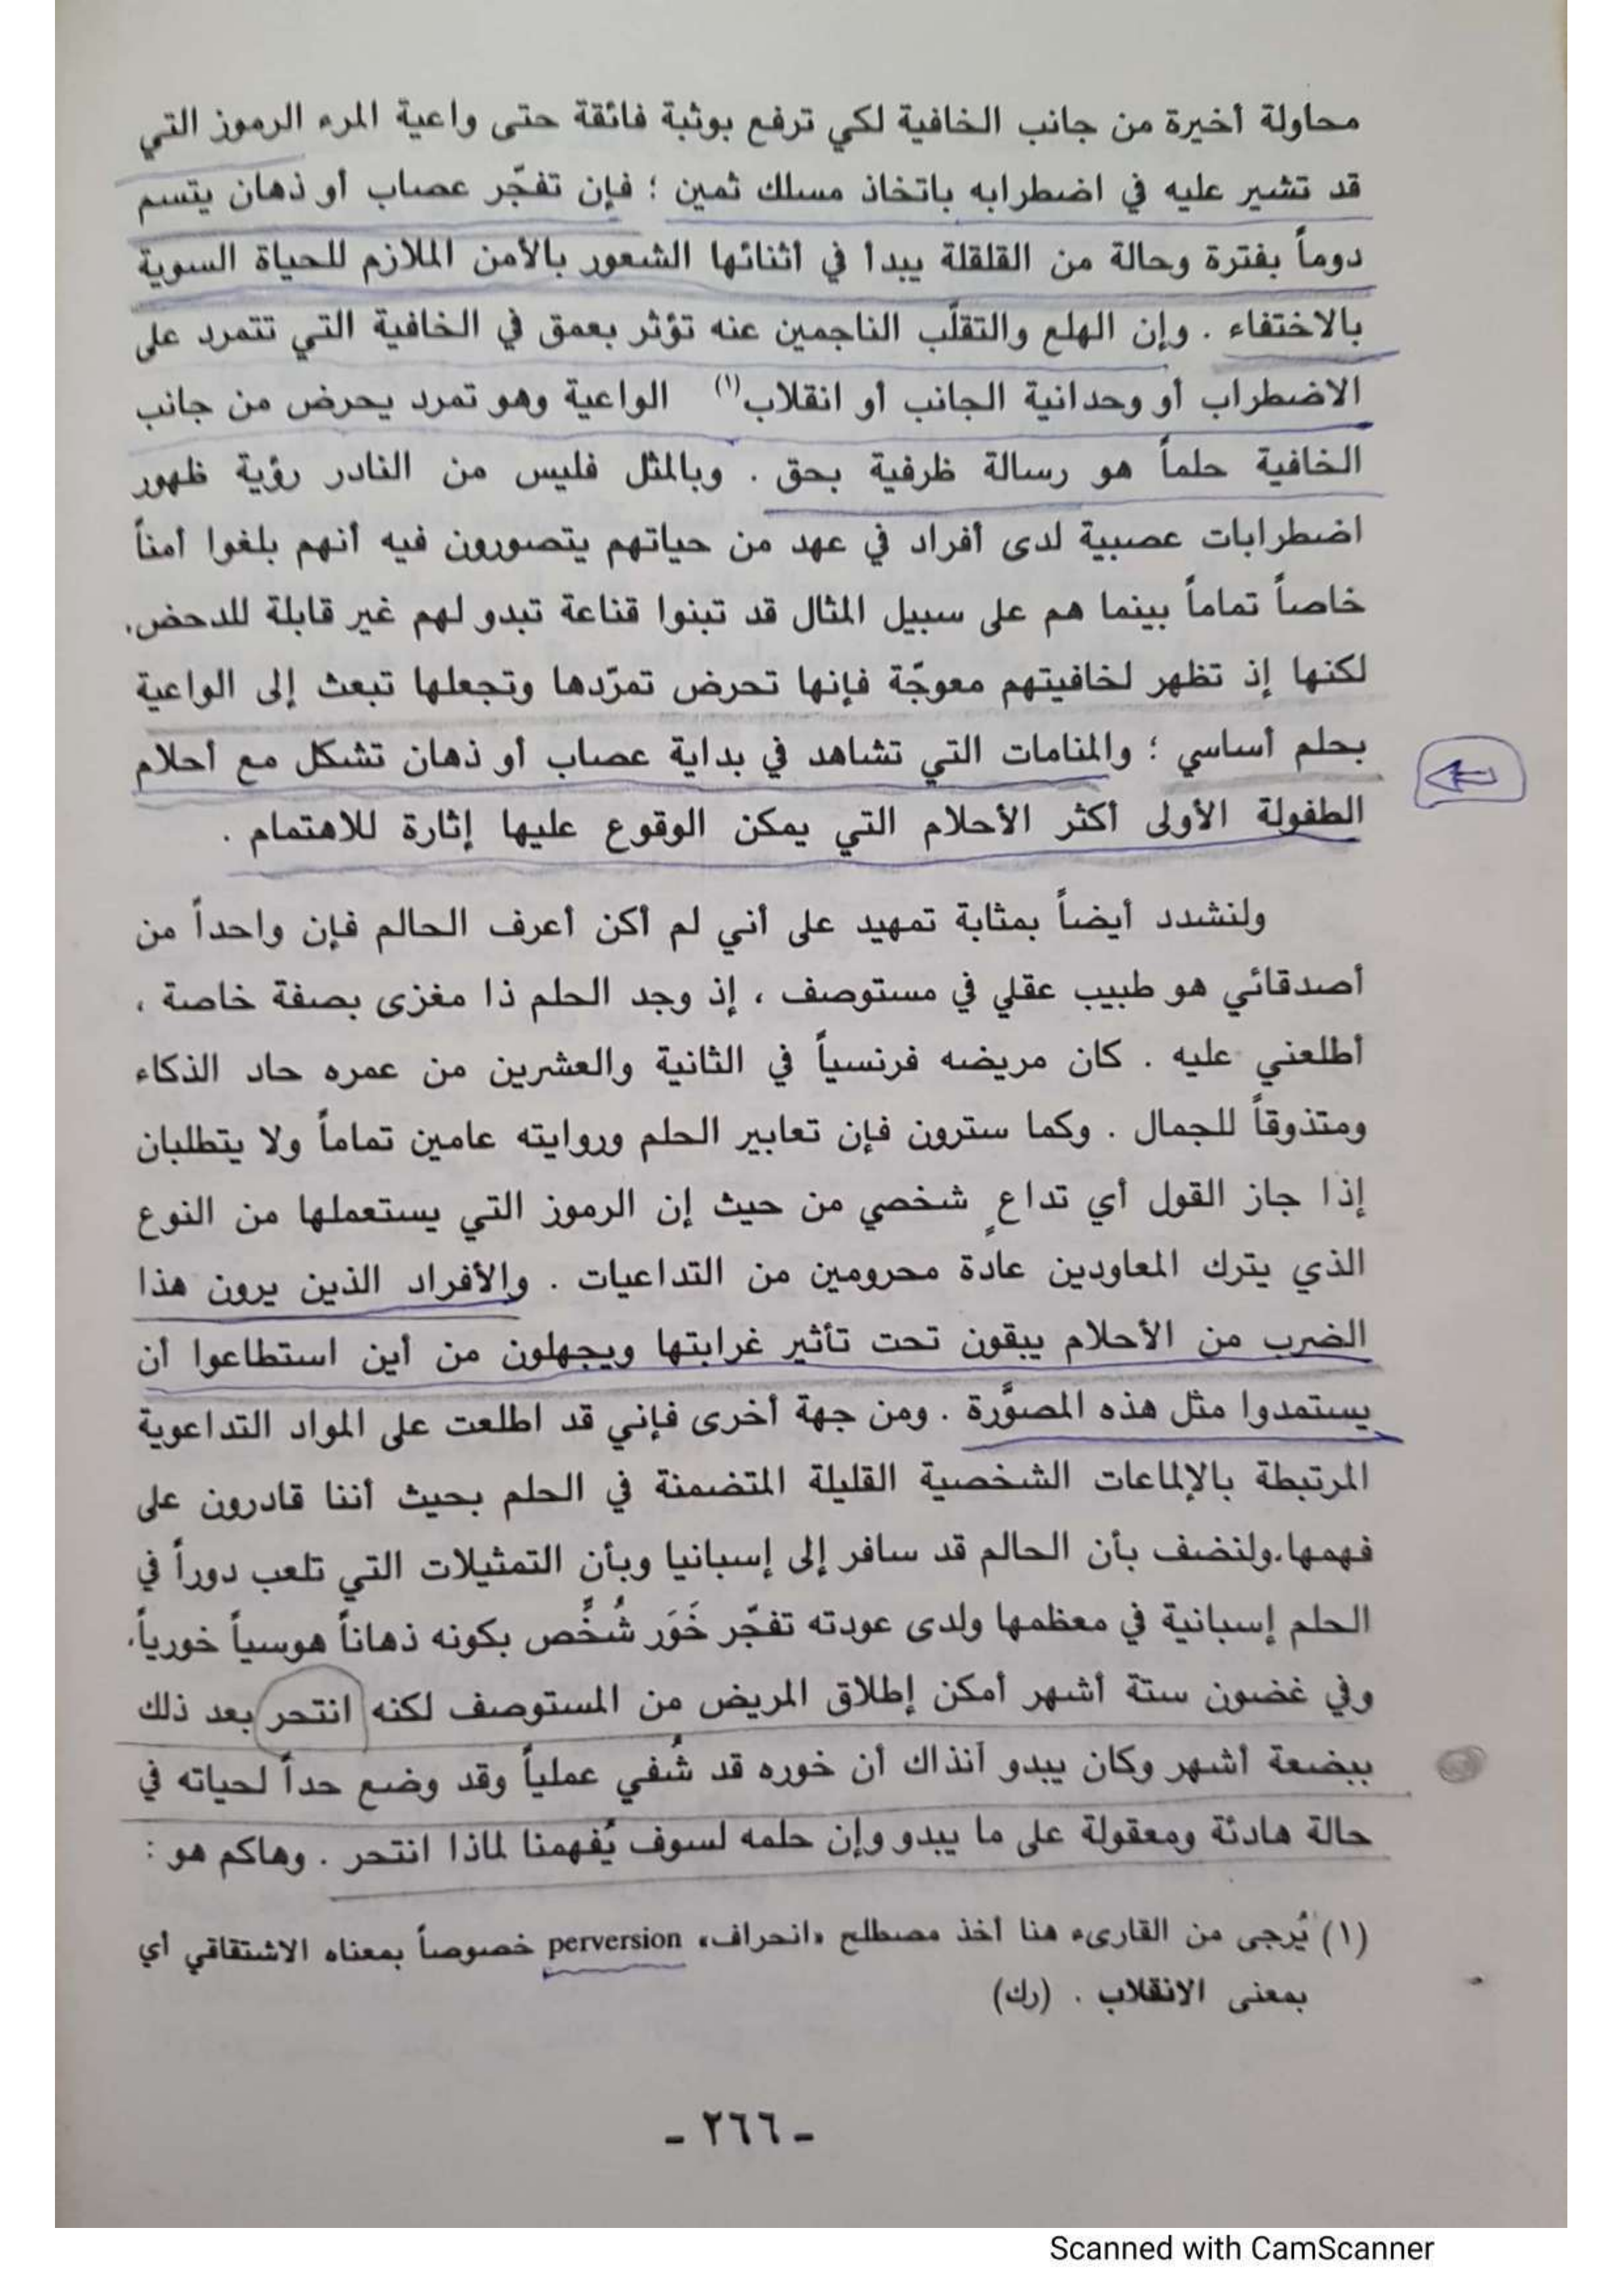 محاولة أخيرة من جانب الخافية لكي ترفع بوثبة فائقة حتى واعية المرء الرموز التي
قد تشير عليه في اضطرابه باتخاذ مسلك ثمين ؛ فإن تفجّر عصاب أو ذهان يتسم
دوماً بفترة وحالة من القلقلة يبدأ في أثنائها الشعور بالأمن الملازم للحياة السوية
بالاختفاء . وإن الهلع والتقلّب الناجمين عنه تؤثر بعمق في الخافية التي تتمرد على
الاضطراب أو وحدانية الجانب أو انقلاب(١) الواعية وهو تمرد يحرض من جانب
الخافية حلماً هو رسالة ظرفية بحق . وبالمثل فليس من النادر رؤية ظهور
اضطرابات عصبية لدى أفراد في عهد من حياتهم يتصورون فيه أنهم بلغوا أمناً
خاصاً تماماً بينما هم على سبيل المثال قد تبنوا قناعة تبدو لهم غير قابلة للدحض.
لكنها إذ تظهر لخافيتهم معوجّة فإنها تحرض تمرّدها وتجعلها تبعث إلى الواعية
بحلم أساسي ؛ والمنامات التي تشاهد في بداية عصاب أو ذهان تشكل مع أحلام
الطفولة الأولى أكثر الأحلام التي يمكن الوقوع عليها إثارة للاهتمام .
ولنشدد أيضاً بمثابة تمهيد على أني لم أكن أعرف الحالم فإن واحداً من
أصدقائي هو طبيب عقلي في مستوصف ، إذ وجد الحلم ذا مغزى بصفة خاصة ،
أطلعني عليه . كان مريضه فرنسياً في الثانية والعشرين من عمره حاد الذكاء
ومتذوقاً للجمال . وكما سترون فإن تعابير الحلم وروايته عامين تماماً ولا يتطلبان
إذا جاز القول أي تداعٍ شخصي من حيث إن الرموز التي يستعملها من النوع
الذي يترك المعاودين عادة محرومين من التداعيات . والأفراد الذين يرون هذا
الضرب من الأحلام يبقون تحت تأثير غرابتها ويجهلون من أين استطاعوا أن
يستمدوا مثل هذه المصوَّرة . ومن جهة أخرى فإني قد اطلعت على المواد التداعوية
المرتبطة بالإلماعات الشخصية القليلة المتضمنة في الحلم بحيث أننا قادرون على
فهمها.ولنضف بأن الحالم قد سافر إلى إسبانيا وبأن التمثيلات التي تلعب دوراً في
الحلم إسبانية في معظمها ولدى عودته تفجّر خَوَر شُخِّص بكونه ذهاناً هوسياً خورياً.
وفي غضون ستة أشهر أمكن إطلاق المريض من المستوصف لكنه انتحر بعد ذلك
ببضعة أشهر وكان يبدو آنذاك أن خوره قد شُفي عملياً وقد وضع حداً لحياته في
حالة هادئة ومعقولة على ما يبدو وإن حلمه لسوف يُفهمنا لماذا انتحر . وهاكم هو :
(١) يُرجى من القارىء هنا أخذ مصطلح «انحراف» perversion خصوصاً بمعناه الاشتقاقي أي
بمعنى الانقلاب . (رك)
- ٢٦٦ -
Scanned with CamScanner